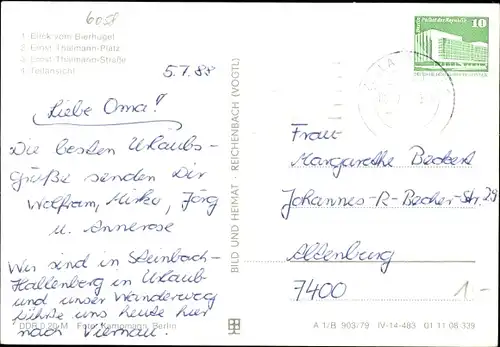 6058
1. Blick vom Bierhügel
2. Ernst-Thälmann-Platz
3. Ernst-Thälmann-Straße
4. Teilansicht
5.7.88
Liebe Oma!
Die besten Urlaubs-
grüße senden Dir
Wolfram, Mirko, Jörg
u. Annerose
Wir sind in Steinbach-
Hallenberg in Urlaub
und unser Wanderweg
führte uns heute hier
nach Viernau.
DDR 0,20 M Foto: Kampmann, Berlin
BILD UND HEIMAT · REICHENBACH (VOGTL)
10
Frau
Margarethe Beckert
Johannes-R-Becher-Str. 29
Altenburg
7400
1.-
A 1/B 903/79 IV-14-483 01 11 08 339